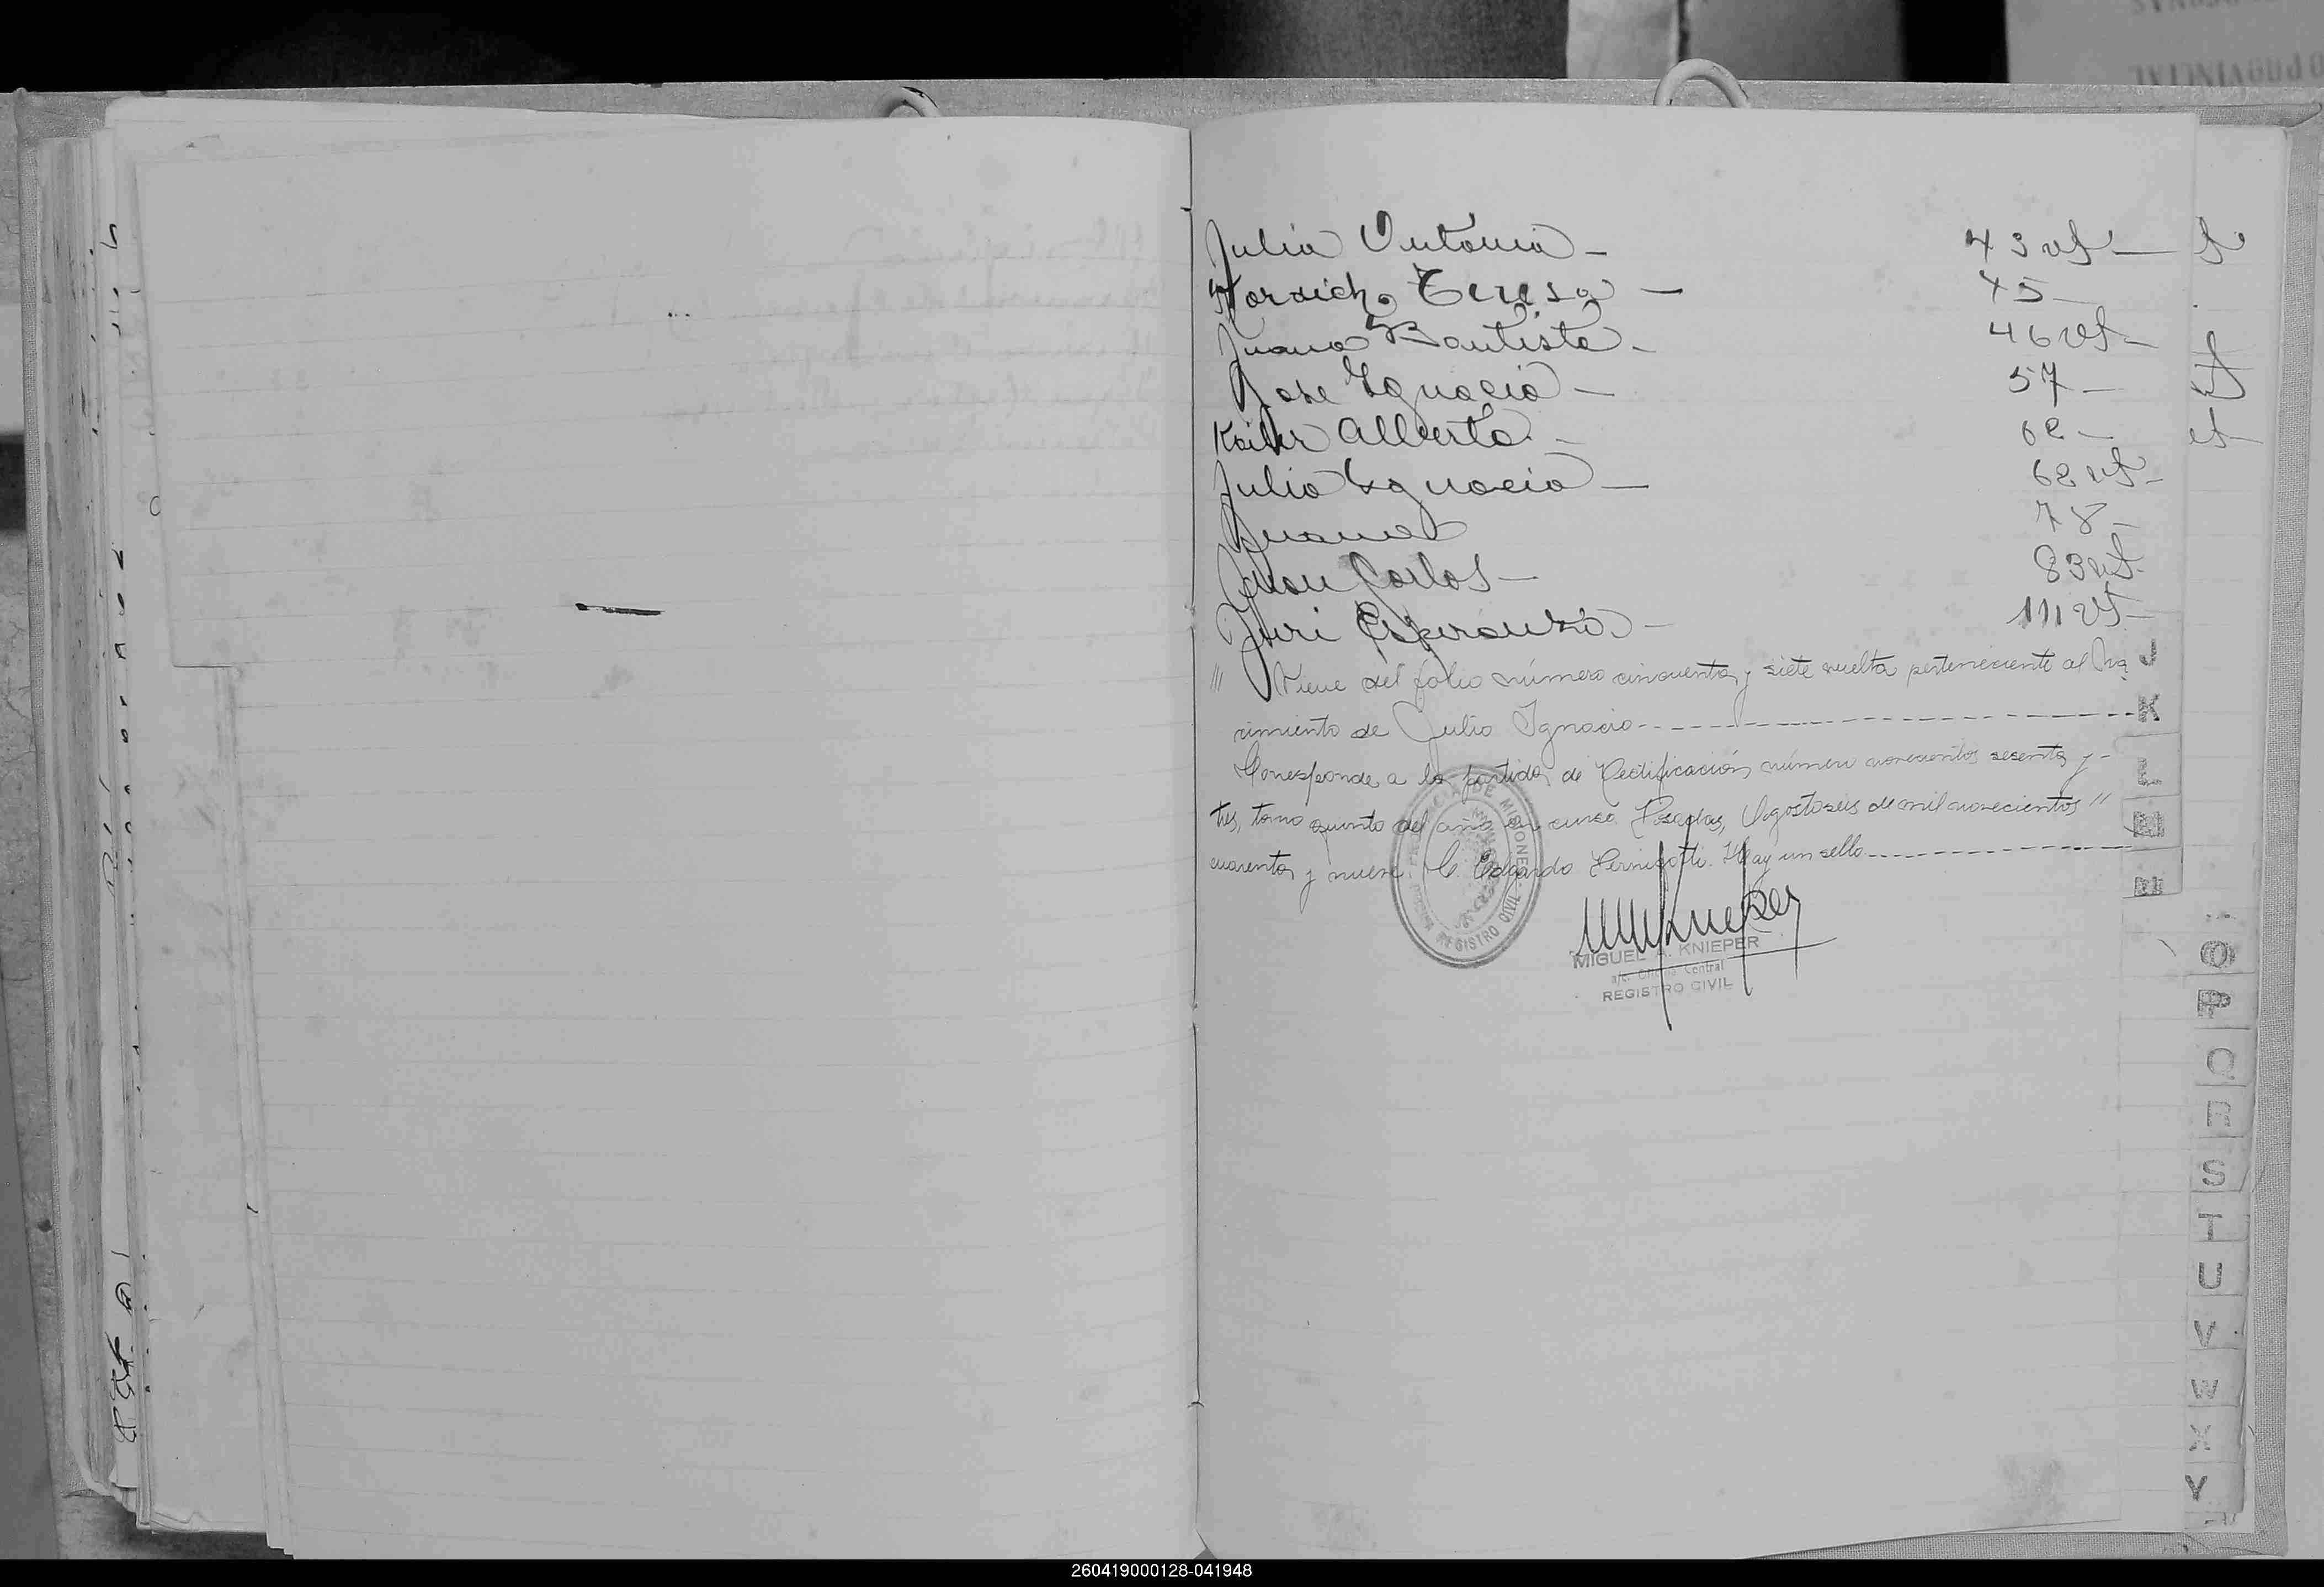 Julia Antonia - 43 vt -
Teresa - 45 -
Juana Bautista - 46 vt -
José Ignacio - 57 -
Alberto - 62 -
Julio Ignacio - 62 vt -
Juana 78 -
Juan Carlos - 83 vt -
Esperanza - 111 vt -
/// Viene del folio número cincuenta y siete vuelta perteneciente al Na
cimiento de Julio Ignacio
Corresponde a la partida de Rectificación número novecientos sesenta y -
tres, tomo quinto del año en curso. Posadas, Agosto seis de mil novecientos //
cuarenta y nueve. C. Edgardo Pernigotti. Hay un sello
PROVINCIA DE MISIONES
REGISTRO CIVIL
MIGUEL A. KNIEPER
a/c. Oficina Central
REGISTRO CIVIL
J
K
L
M
N
O
P
Q
R
S
T
U
V
W
X
Y
260419000128-041948